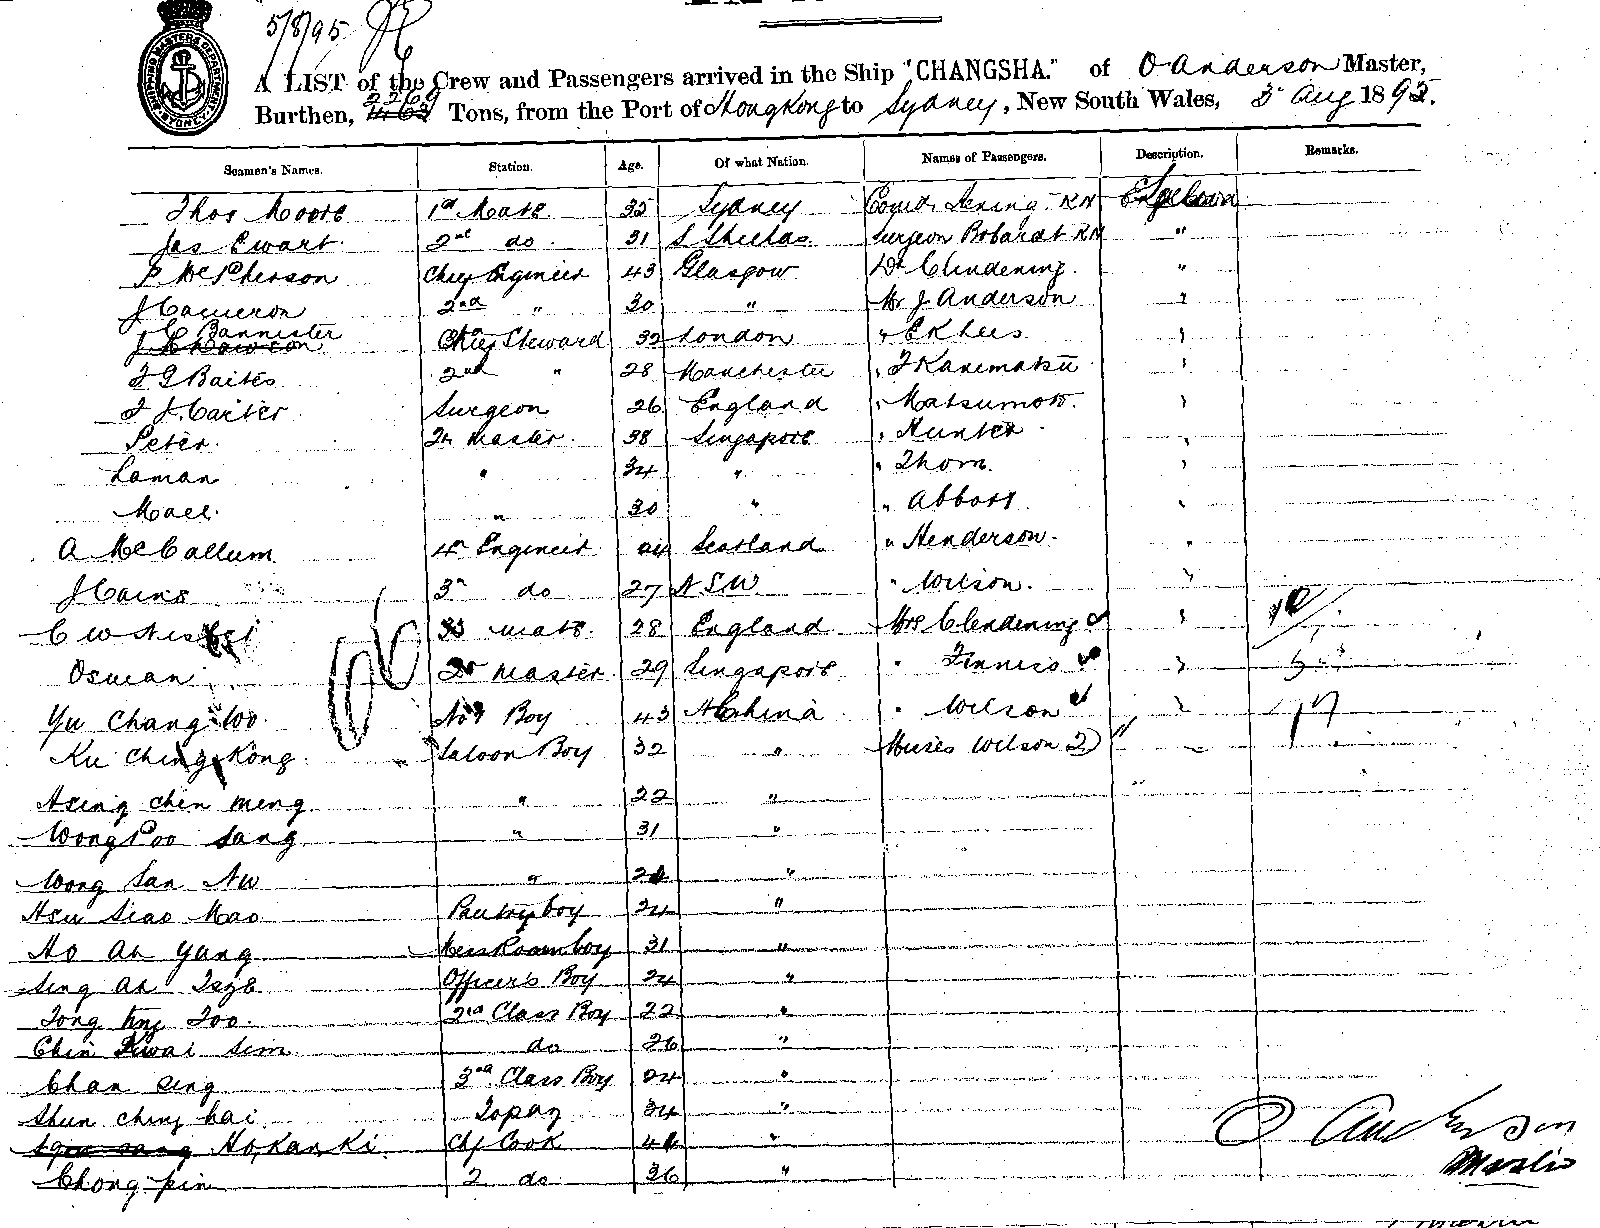 5/8/95
SHIPPING MASTERS DEPARTMENT SYDNEY
A LIST of the Crew and Passengers arrived in the Ship "CHANGSHA." of O Anderson Master,
Burthen, 2269 Tons, from the Port of Hongkong to Sydney, New South Wales, 5 Aug 1895.
Seamen's Names. Station. Age. Of what Nation. Names of Passengers. Description. Remarks.
Thos Moore 1st Mate 35 Sydney RN
Jas Ewart 2nd do 31 S Shields Surgeon Robardt RN "
P McPherson Chief Engineer 43 Glasgow Dr Clindening "
J Cameron 2nd " 30 " Mr J Anderson "
J C Bannister Chief Steward 32 London " E K Lees "
F G Baites 2nd " 28 Manchester " F Kanematsu "
F J Carter Surgeon 26 England " Matsumoto "
Peter Qr Master 38 Singapore " Hunter "
Laman " 34 " " Thorn "
" 30 " " Abbott "
A McCallum 4th Engineer 24 Scotland " Henderson "
J Cains 3rd do 27 NSW " Wilson "
C W Nisbet 3d mate 28 England Mrs Clendening "
Osman Qr Master 29 Singapore " Finniss "
Yu Chang Woo No 1 Boy 43 China " Wilson "
Ku Ching Kong Saloon Boy 32 " Misses Wilson 2 "
Hsing Chen Meng " 22 "
Wong Poo Sang " 31 "
Wong San Nw " "
Hsu Siao Mao Pantry boy 24 "
Ho Ah Yang Mess Room boy 31 "
Sing Ah Officer's Boy 24 "
Tong Too 2nd Class Boy 22 "
Chin Kwai Sim do 26 "
Chan Sing 3rd Class Boy 24 "
Shun Ching Hai Topaz 34 "
Ho Kan Ki Chf Cook "
Chong Pin 2 do 36 "
O Anderson
Master